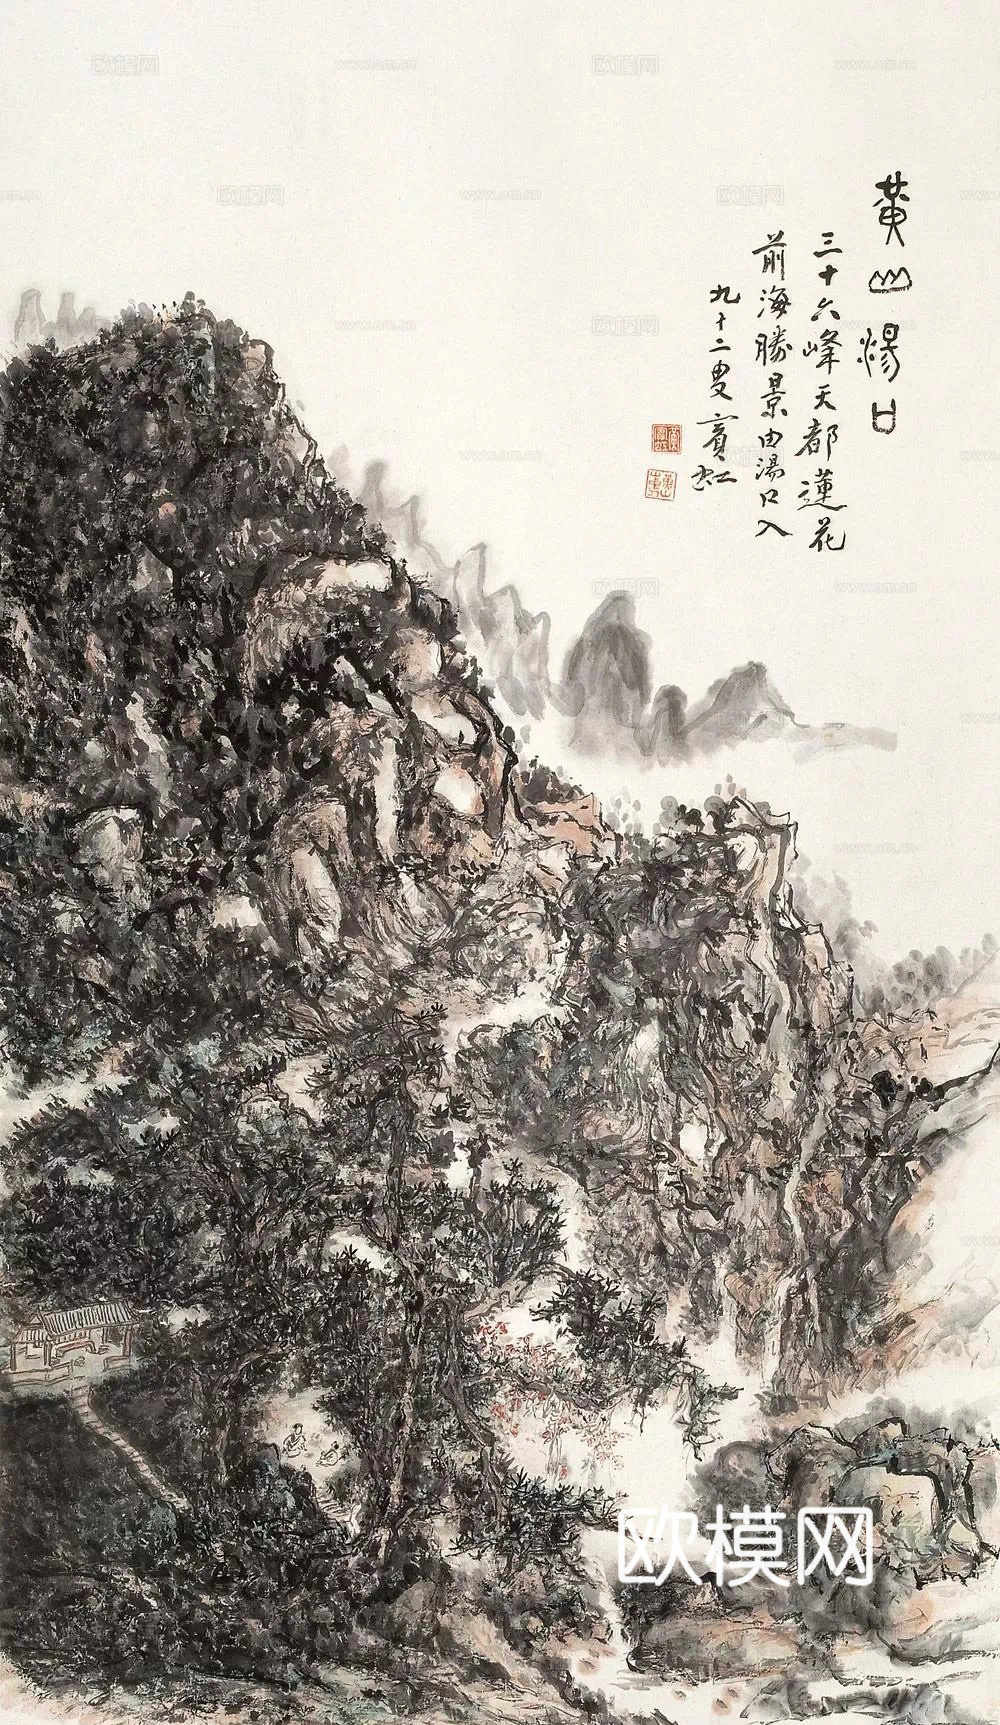 黄山湯口
三十六峰天都蓮花
前海勝景由湯口入
九十二叟賓虹
欧模网
www.om.cn